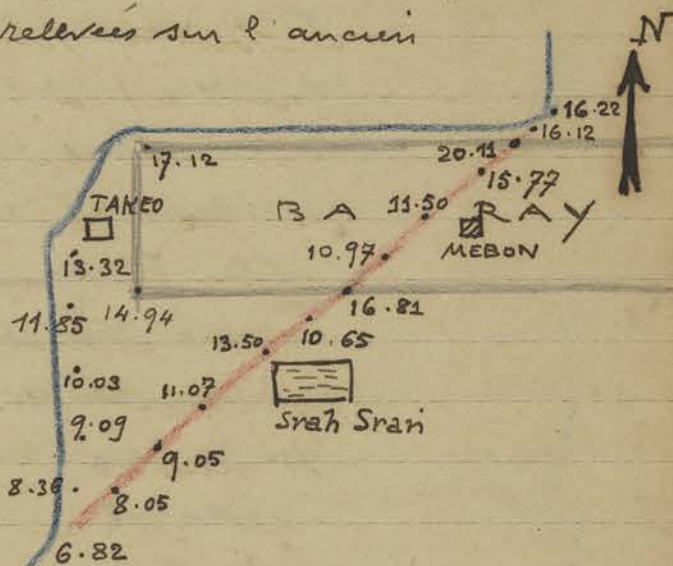 relevées sur l'ancien
N
16.22
16.12
20.11
17.12
15.77
TAKEO
BARAY
11.50
MEBON
13.32
10.97
14.94
16.81
11.85
10.65
13.50
10.03
11.07
Srah Sran
9.09
9.05
8.36
8.05
6.82